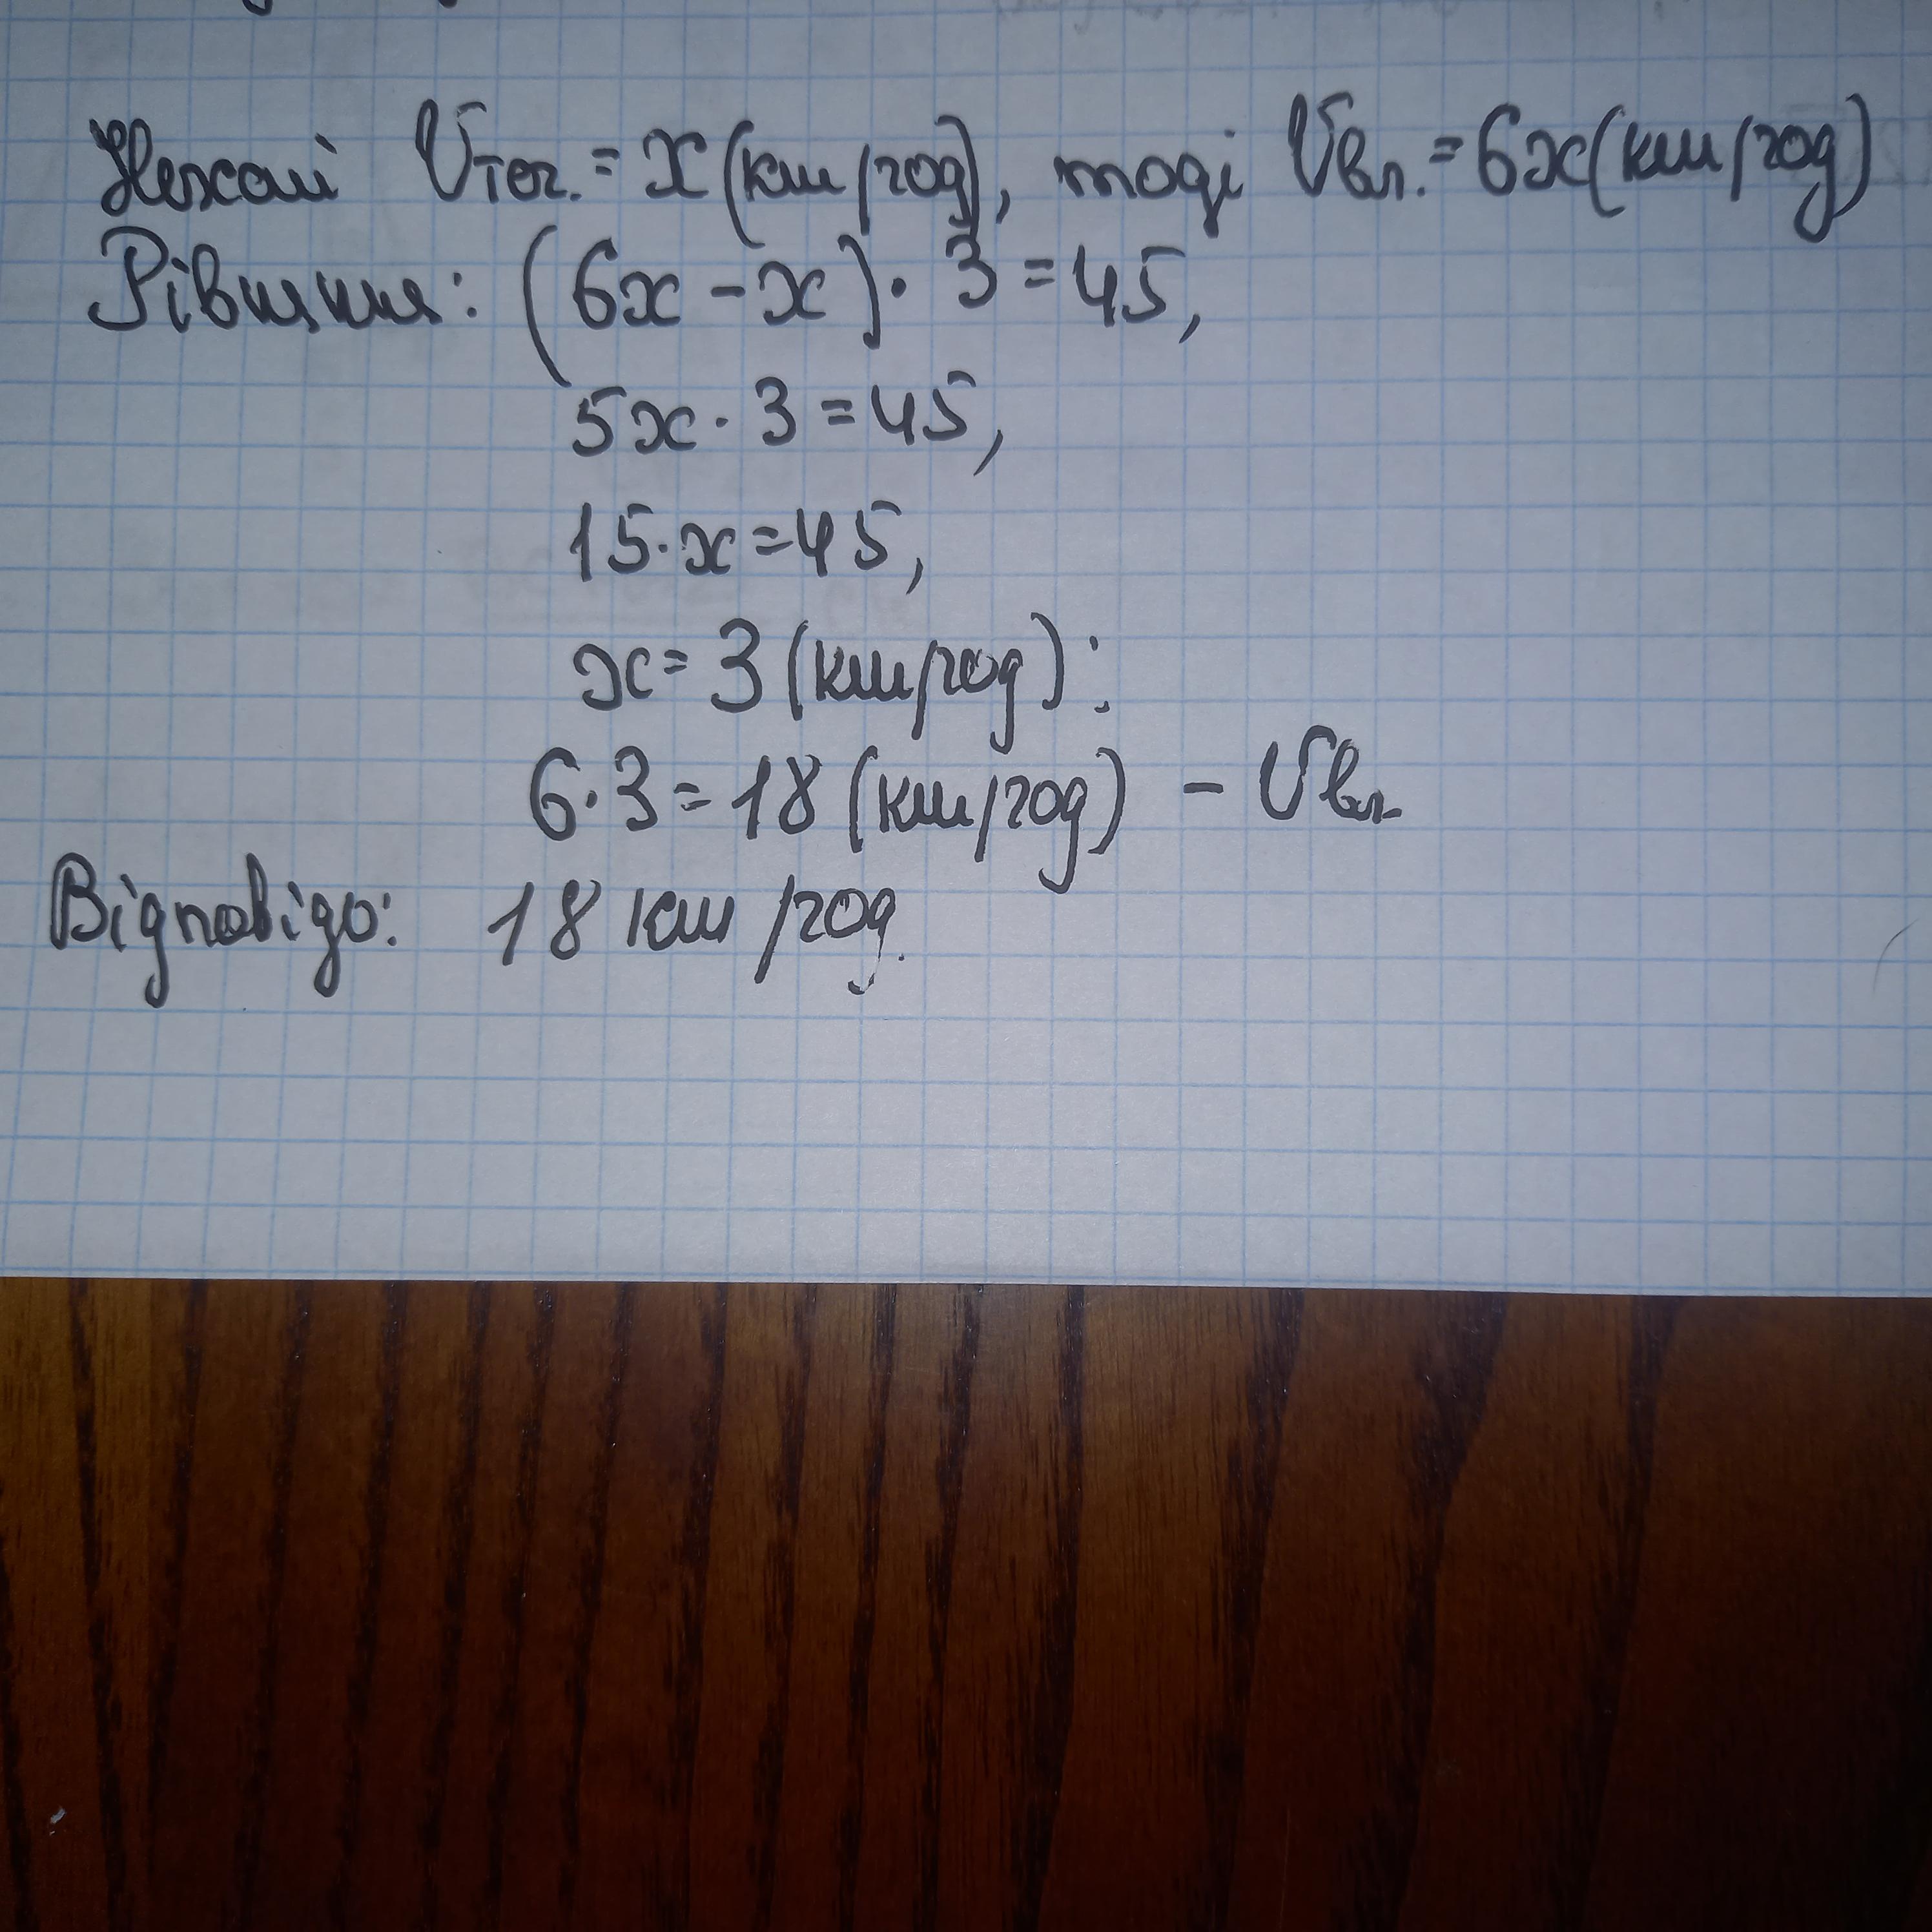 Нехай Vтеч. = x (км/год), тоді Vвл. = 6x (км/год)
Рівняння: (6x - x) · 3 = 45,
5x · 3 = 45,
15 · x = 45,
x = 3 (км/год);
6 · 3 = 18 (км/год) - Vвл.
Відповідь: 18 км/год.